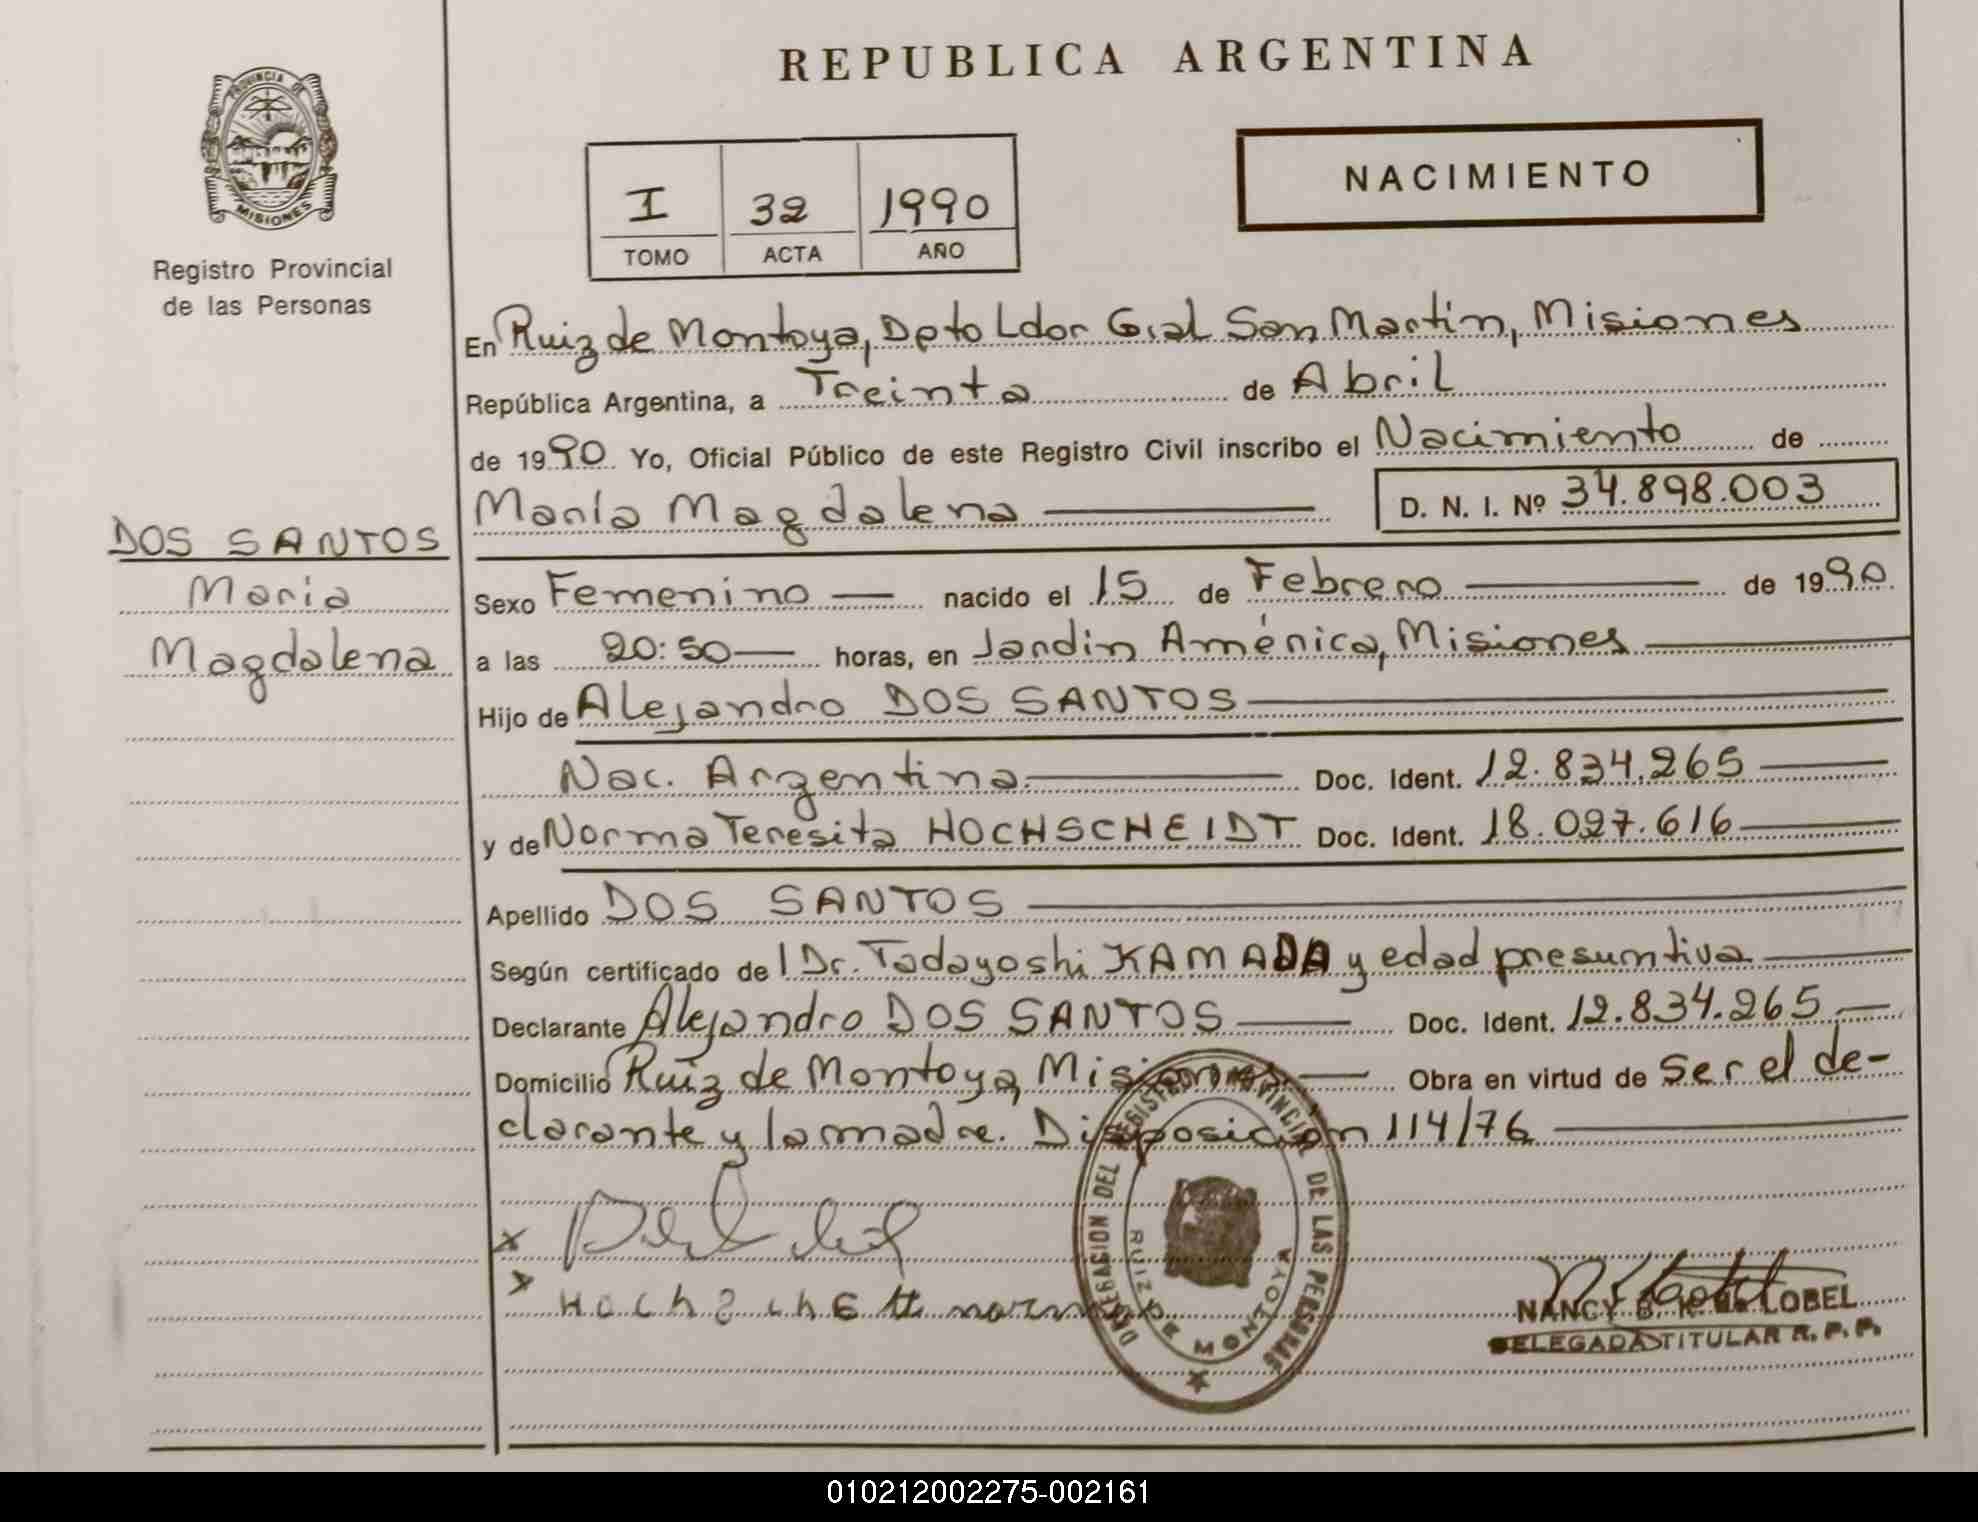 REPUBLICA ARGENTINA
PROVINCIA DE
MISIONES
Registro Provincial
de las Personas
I 32 1990
TOMO ACTA AÑO
NACIMIENTO
En Ruiz de Montoya, Dpto Ldor Gral San Martín, Misiones
República Argentina, a Treinta de Abril
de 1990 Yo, Oficial Público de este Registro Civil inscribo el Nacimiento de
María Magdalena D. N. I. Nº 34.898.003
DOS SANTOS
María
Magdalena
Sexo Femenino nacido el 15 de Febrero de 1990
a las 20:50 horas, en Jardín América, Misiones
Hijo de Alejandro DOS SANTOS
Nac. Argentina Doc. Ident. 12.834.265
y de Norma Teresita HOCHSCHEIDT Doc. Ident. 18.027.616
Apellido DOS SANTOS
Según certificado del Dr. Tadayoshi KAMADA y edad presuntiva
Declarante Alejandro DOS SANTOS Doc. Ident. 12.834.265
Domicilio Ruiz de Montoya, Misiones Obra en virtud de Ser el de-
clarante y la madre. Disposición 114/76
DELEGACION DEL REGISTRO PROVINCIAL DE LAS PERSONAS
RUIZ DE MONTOYA
NANCY B. LOBEL
DELEGADA TITULAR R. P. P.
010212002275-002161